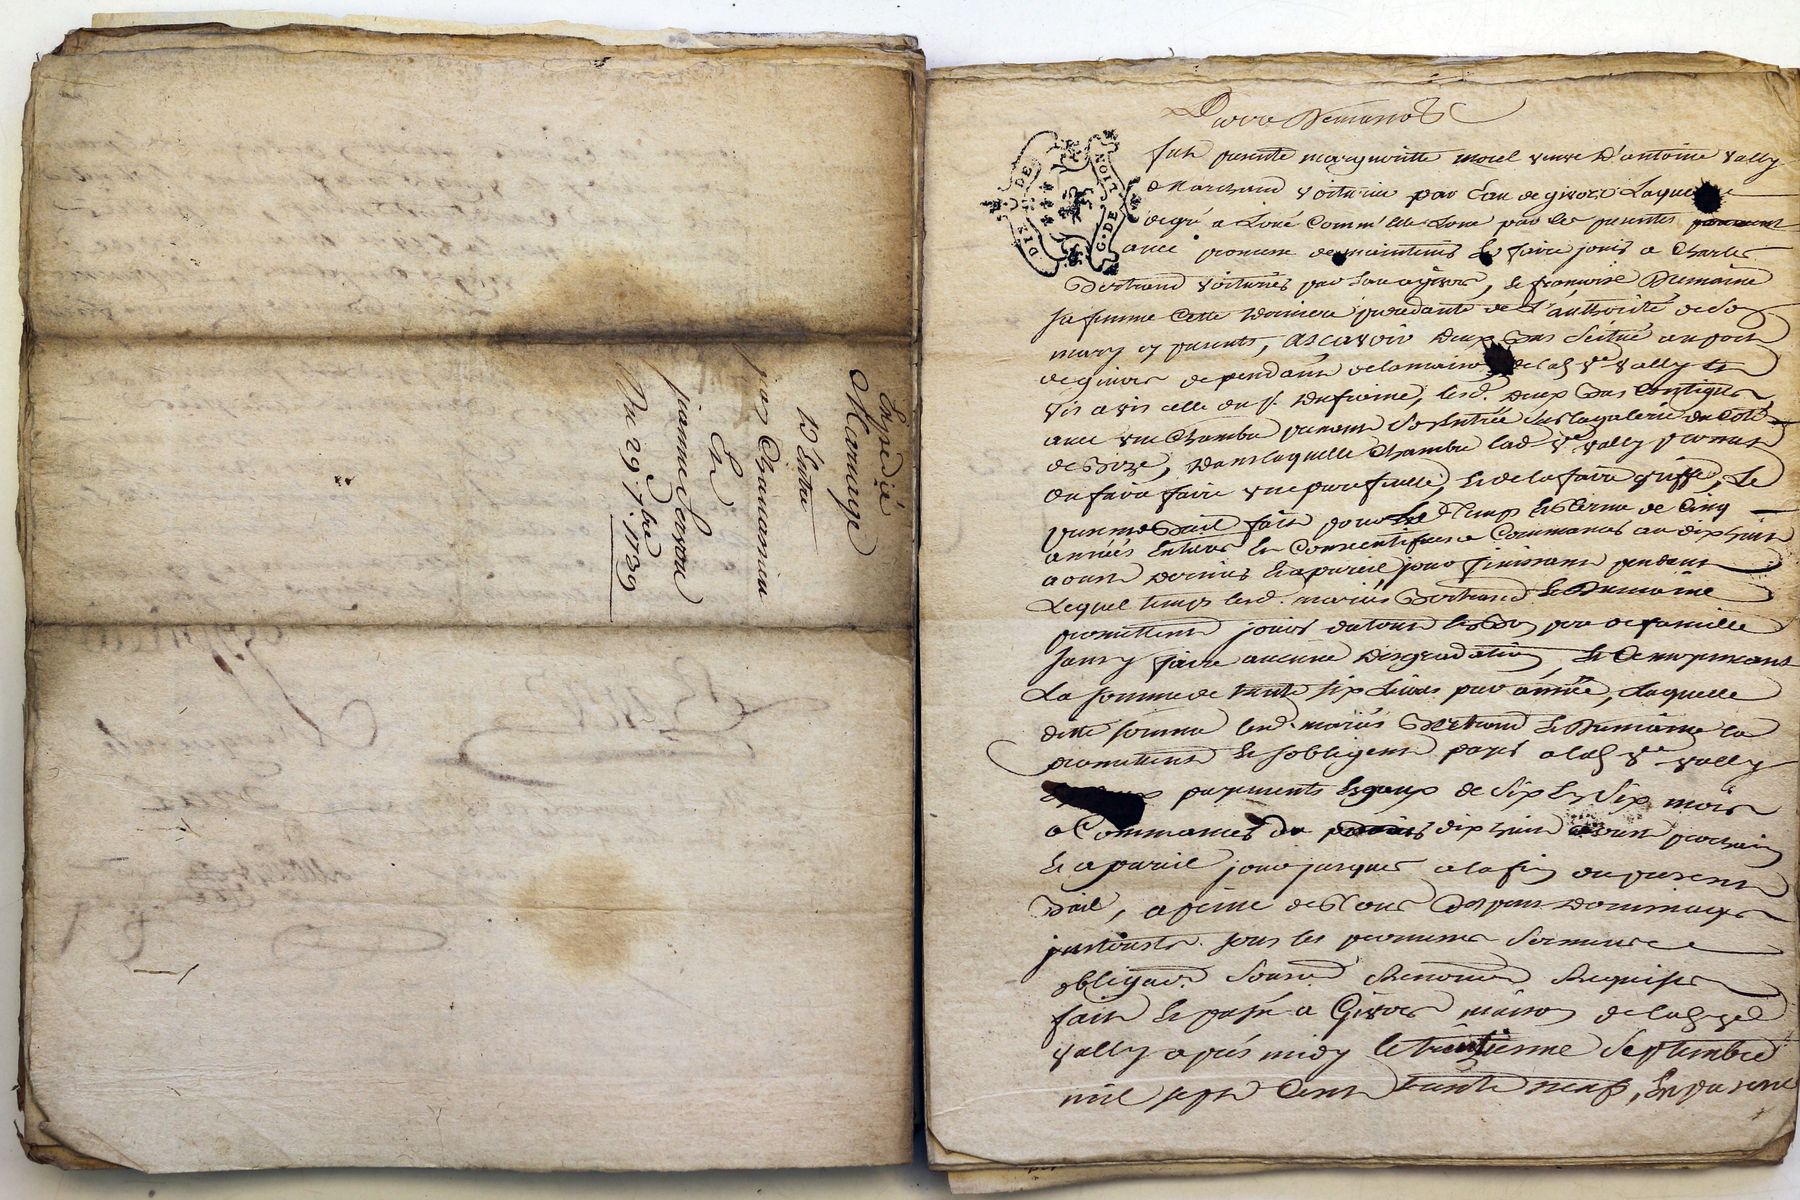 Expedié
Mariage
D'Entre
jean Chanavanieu
Et
jeanne Servan
Du 29 7bre 1739
DIX DE
G. DE LION
fut presente margueritte morel veuve D'antoine vally
Marchand voiturier par Eau de givors Laquelle
de gré a Loué Comm' Elle Loue par les presentes
avec promesse de maintenir & faire jouir a Charles
Bertrand voiturier par Eau a givors, & françoise Dumaine
sa femme Cette Derniere procedante de L'authorité de son
mary cy presents, ascavoir Deux Bas scitué au port
de givors dependant de la maison de lad ve vally
vis a vis celle du s. Dufreine, lesd. Deux Bas Contigus
avec une Chambre prenant son Entrée sur la galerie du Coté
de Bize, Dans laquelle Chambre lad ve vally promet
de faire faire une & de la faire, Le
present Bail fait pour Le temps & terme de Cinq
années Entieres & Consecutives a Commancer au dix huit
aoust Dernier & a pareil jour finissant pendant
Lequel temps lesd. mariés Bertrand & Dumaine
promettent jouir du tout en Bon pere de famille
sans y faire aucune Desgradation, & Ce moyenant
La somme de trente six Livres par année, Laquelle
ditte somme lesd. mariés Bertrand & Dumaine la
promettent & s'obligent payer a lad ve vally
payements Egaux de six En six mois
a Commancer du dix huit aoust prochain
& a pareil jour jusques a la fin du present
Bail, a peine de Tous Depens Dommages
interests. sous les promesses serment
obligaõn soumõn Renonõn Requises
fait & passé a Givors maison de lad ve
vally aprés midy le trentieme Septembre
mil sept Cent trente neuf, En presence